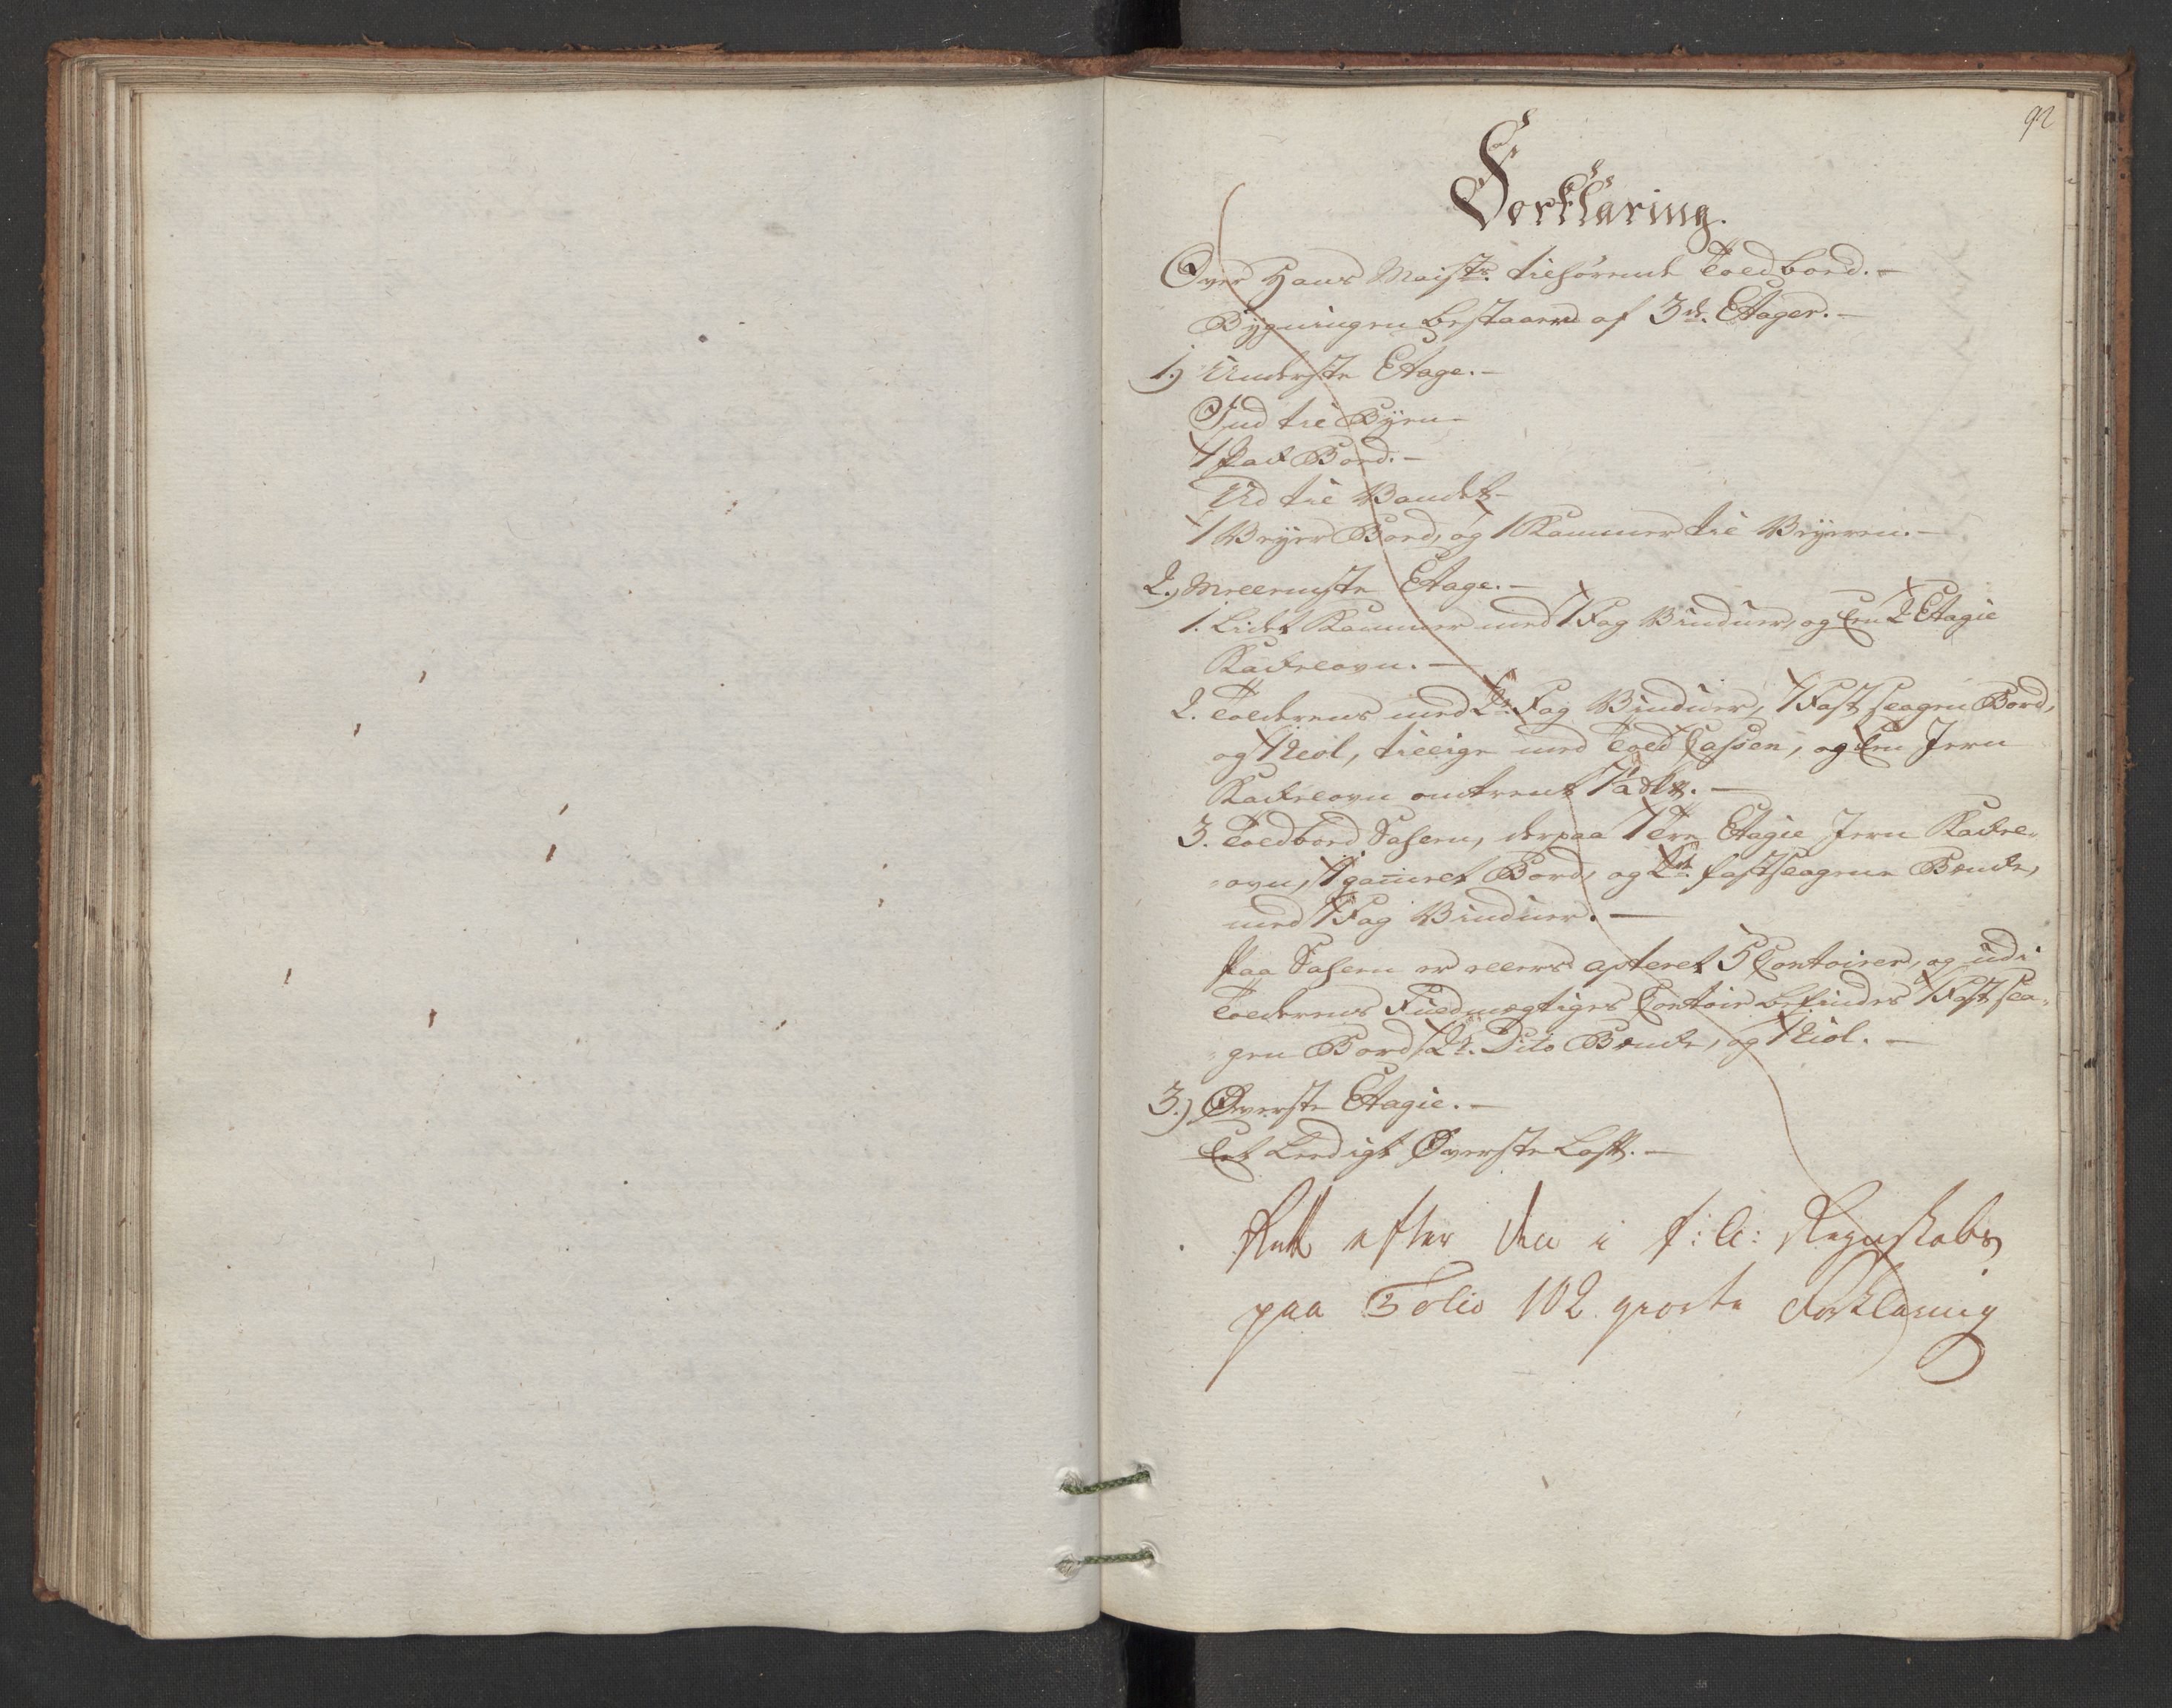 92
Forklaring.
Over Hans Maists. tilhørende Toldboed. –
Bygningen bestaaend af 3de. Etager. –
1.) Underste Etage. –
Ind til Byen –
1 Pak Boed. –
Ud til Vandet –
1 Vejer Boed, og 1 Kammer til Vejeren. –
2.) Mellemste Etage. –
1. Lidet Kammer med 1 Fag Vinduer, og Een 2 Etagie
Kakelovn. –
2. Tolderens med 2de. Fag Vinduer, 1 Fast slagen Bord,
og 1 Reol, tillige med Told Cassen, og Een Jern
Kakelovn omtrent
3. Toldboed Sahlen, derpaa 1 Tre Etagie Jern Kakel„
„ovn, 1 gammel Bord, og 2de. fastslagene Bænke,
med 1 Fag Vinduer. –
Paa Sahlen er ellers apteret 5 Contoirer, og udi
Tolderens Fuldmægtiges Contoir befindes 1 Fast sla„
„gen Bord, 2de. Dito Bænke, og 1 Riol. –
3.) Øverste Etagie. –
Eet Leedigt Øverste Loft. –
Rett efter den i f: A: Regnskabs
paa Folio 102 giorte Forklaring